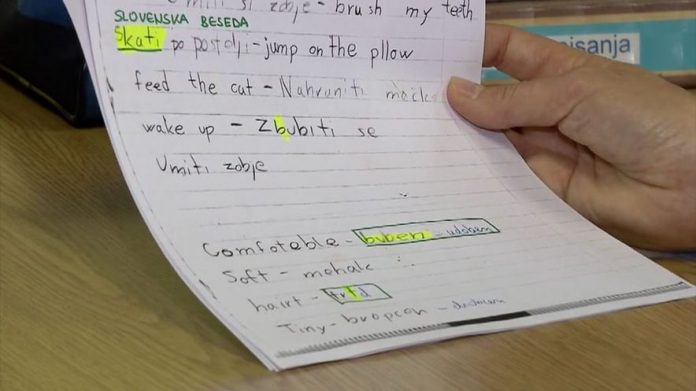 si zobje - brush my teeth
SLOVENSKA BESEDA
Skati po postelji - jump on the pllow
feed the cat - Nahruniti
wake up - Zbubiti se
Umiti zobje
Comfoteble - buben - udoben
Soft - mehak
hairt - trd
Tiny - bropcen -
pisanja